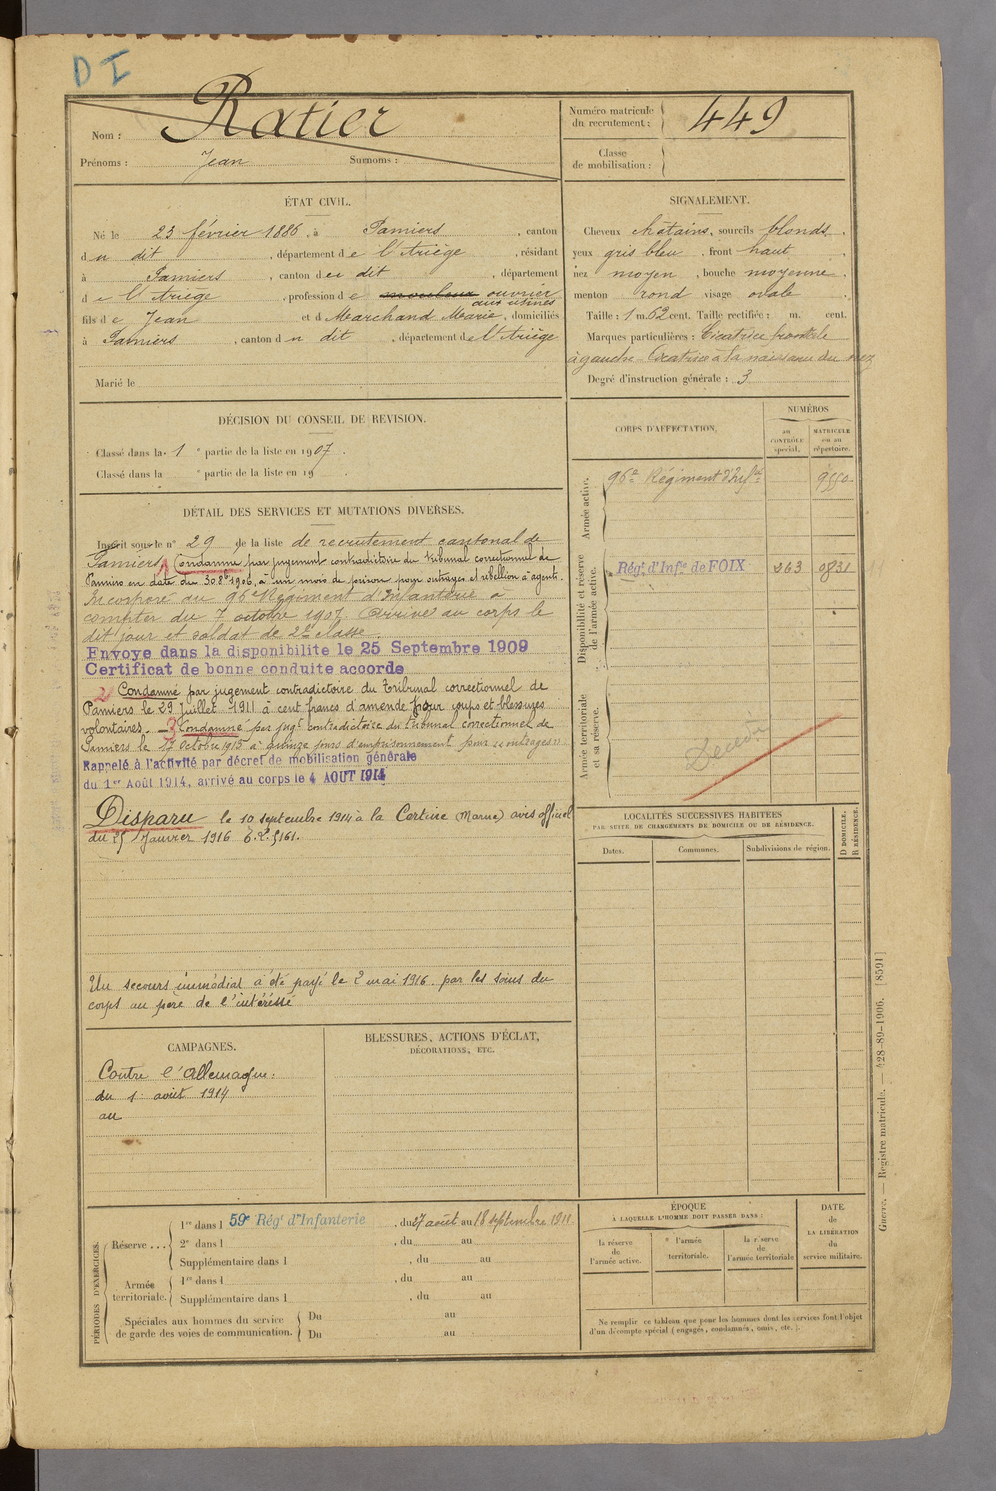 D I
Nom : Ratier
Prénoms : Jean Surnoms :
Numéro matricule du recrutement : 449
Classe de mobilisation :
ÉTAT CIVIL.
Né le 23 février 1886, à Pamiers, canton
du dit, département de l'Ariège, résidant
à Pamiers, canton du dit, département
de l'Ariège, profession de ouvrier
aux usines
fils de Jean et de Marchand Marie, domiciliés
à Pamiers, canton du dit, département de l'Ariège
Marié le
SIGNALEMENT.
Cheveux châtains, sourcils blonds,
yeux gris bleu, front haut,
nez moyen, bouche moyenne,
menton rond visage ovale
Taille : 1 m. 62 cent. Taille rectifiée : m. cent.
Marques particulières : Cicatrice frontale
à gauche. Cicatrice à la naissance du nez
Degré d'instruction générale : 3
DÉCISION DU CONSEIL DE REVISION.
Classé dans la 1e partie de la liste en 1907.
Classé dans la e partie de la liste en 19 .
DÉTAIL DES SERVICES ET MUTATIONS DIVERSES.
Inscrit sous le n° 29 de la liste de recrutement cantonal de
Pamiers 1 Condamné par jugement contradictoire du tribunal correctionnel de
Pamiers en date du 30 8bre 1906, à un mois de prison pour outrages et rébellion à agents.
Incorporé au 96e Régiment d'Infanterie à
compter du 7 octobre 1907. Arrivé au corps le
dit jour et soldat de 2e classe.
Envoye dans la disponibilite le 25 Septembre 1909
Certificat de bonne conduite accorde
2 Condamné par jugement contradictoire du Tribunal correctionnel de
Pamiers le 29 Juillet 1911 à cent francs d'amende pour coups et blessures
volontaires. — 3 Condamné par jugt contradictoire du tribunal correctionnel de
Pamiers le 17 Octobre 1913 à quinze jours d'emprisonnement pour "outrages"
Rappelé à l'activité par décret de mobilisation générale
du 1er Août 1914, arrivé au corps le 4 AOUT 1914
Disparu le 10 septembre 1914 à la Certine (Marne) avis officiel
du 25 Janvier 1916 E.L. 5161.
Un secours immédiat a été payé le 2 mai 1916 par les soins du
corps au père de l'intéressé
CORPS D'AFFECTATION.
NUMÉROS
au CONTRÔLE spécial.
MATRICULE ou au répertoire.
Armée active.
96e Régiment d'Infie 9550
Disponibilité et réserve de l'armée active.
Régt d'Infie de FOIX 263 0831
Armée territoriale et sa réserve.
Décédé
LOCALITÉS SUCCESSIVES HABITÉES
PAR SUITE DE CHANGEMENTS DE DOMICILE OU DE RÉSIDENCE.
Dates. Communes. Subdivisions de région.
D DOMICILE. R RÉSIDENCE.
CAMPAGNES.
Contre l'Allemagne.
du 1 août 1914
au
BLESSURES, ACTIONS D'ÉCLAT,
DÉCORATIONS, ETC.
PÉRIODES D'EXERCICES.
Réserve ...
1re dans l 59e Régt d'Infanterie, du 27 août au 18 septembre 1911.
2e dans l , du au
Supplémentaire dans l , du au
Armée territoriale.
1re dans l , du au
Supplémentaire dans l , du au
Spéciales aux hommes du service de garde des voies de communication.
Du au
Du au
ÉPOQUE
À LAQUELLE L'HOMME DOIT PASSER DANS :
la réserve de l'armée active.
l'armée territoriale.
la réserve de l'armée territoriale
DATE de LA LIBÉRATION du service militaire.
Ne remplir ce tableau que pour les hommes dont les services font l'objet
d'un décompte spécial (engagés, condamnés, omis, etc.).
Guerre. — Registre matricule. — 428-89-1906. [8591]